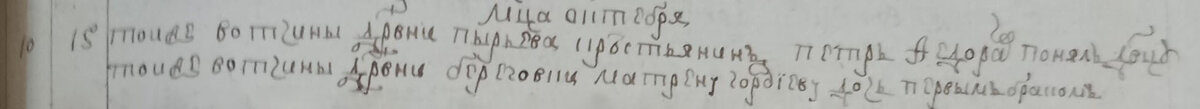 Мца октября
10 15 тоиже вотчины дрвни пырьева крѣстьянинъ петръ Ѳедора понялъ дѣвцу
тоиже вотчины дрвни береговки матрену гордіеву дочь первымъ бракомъ